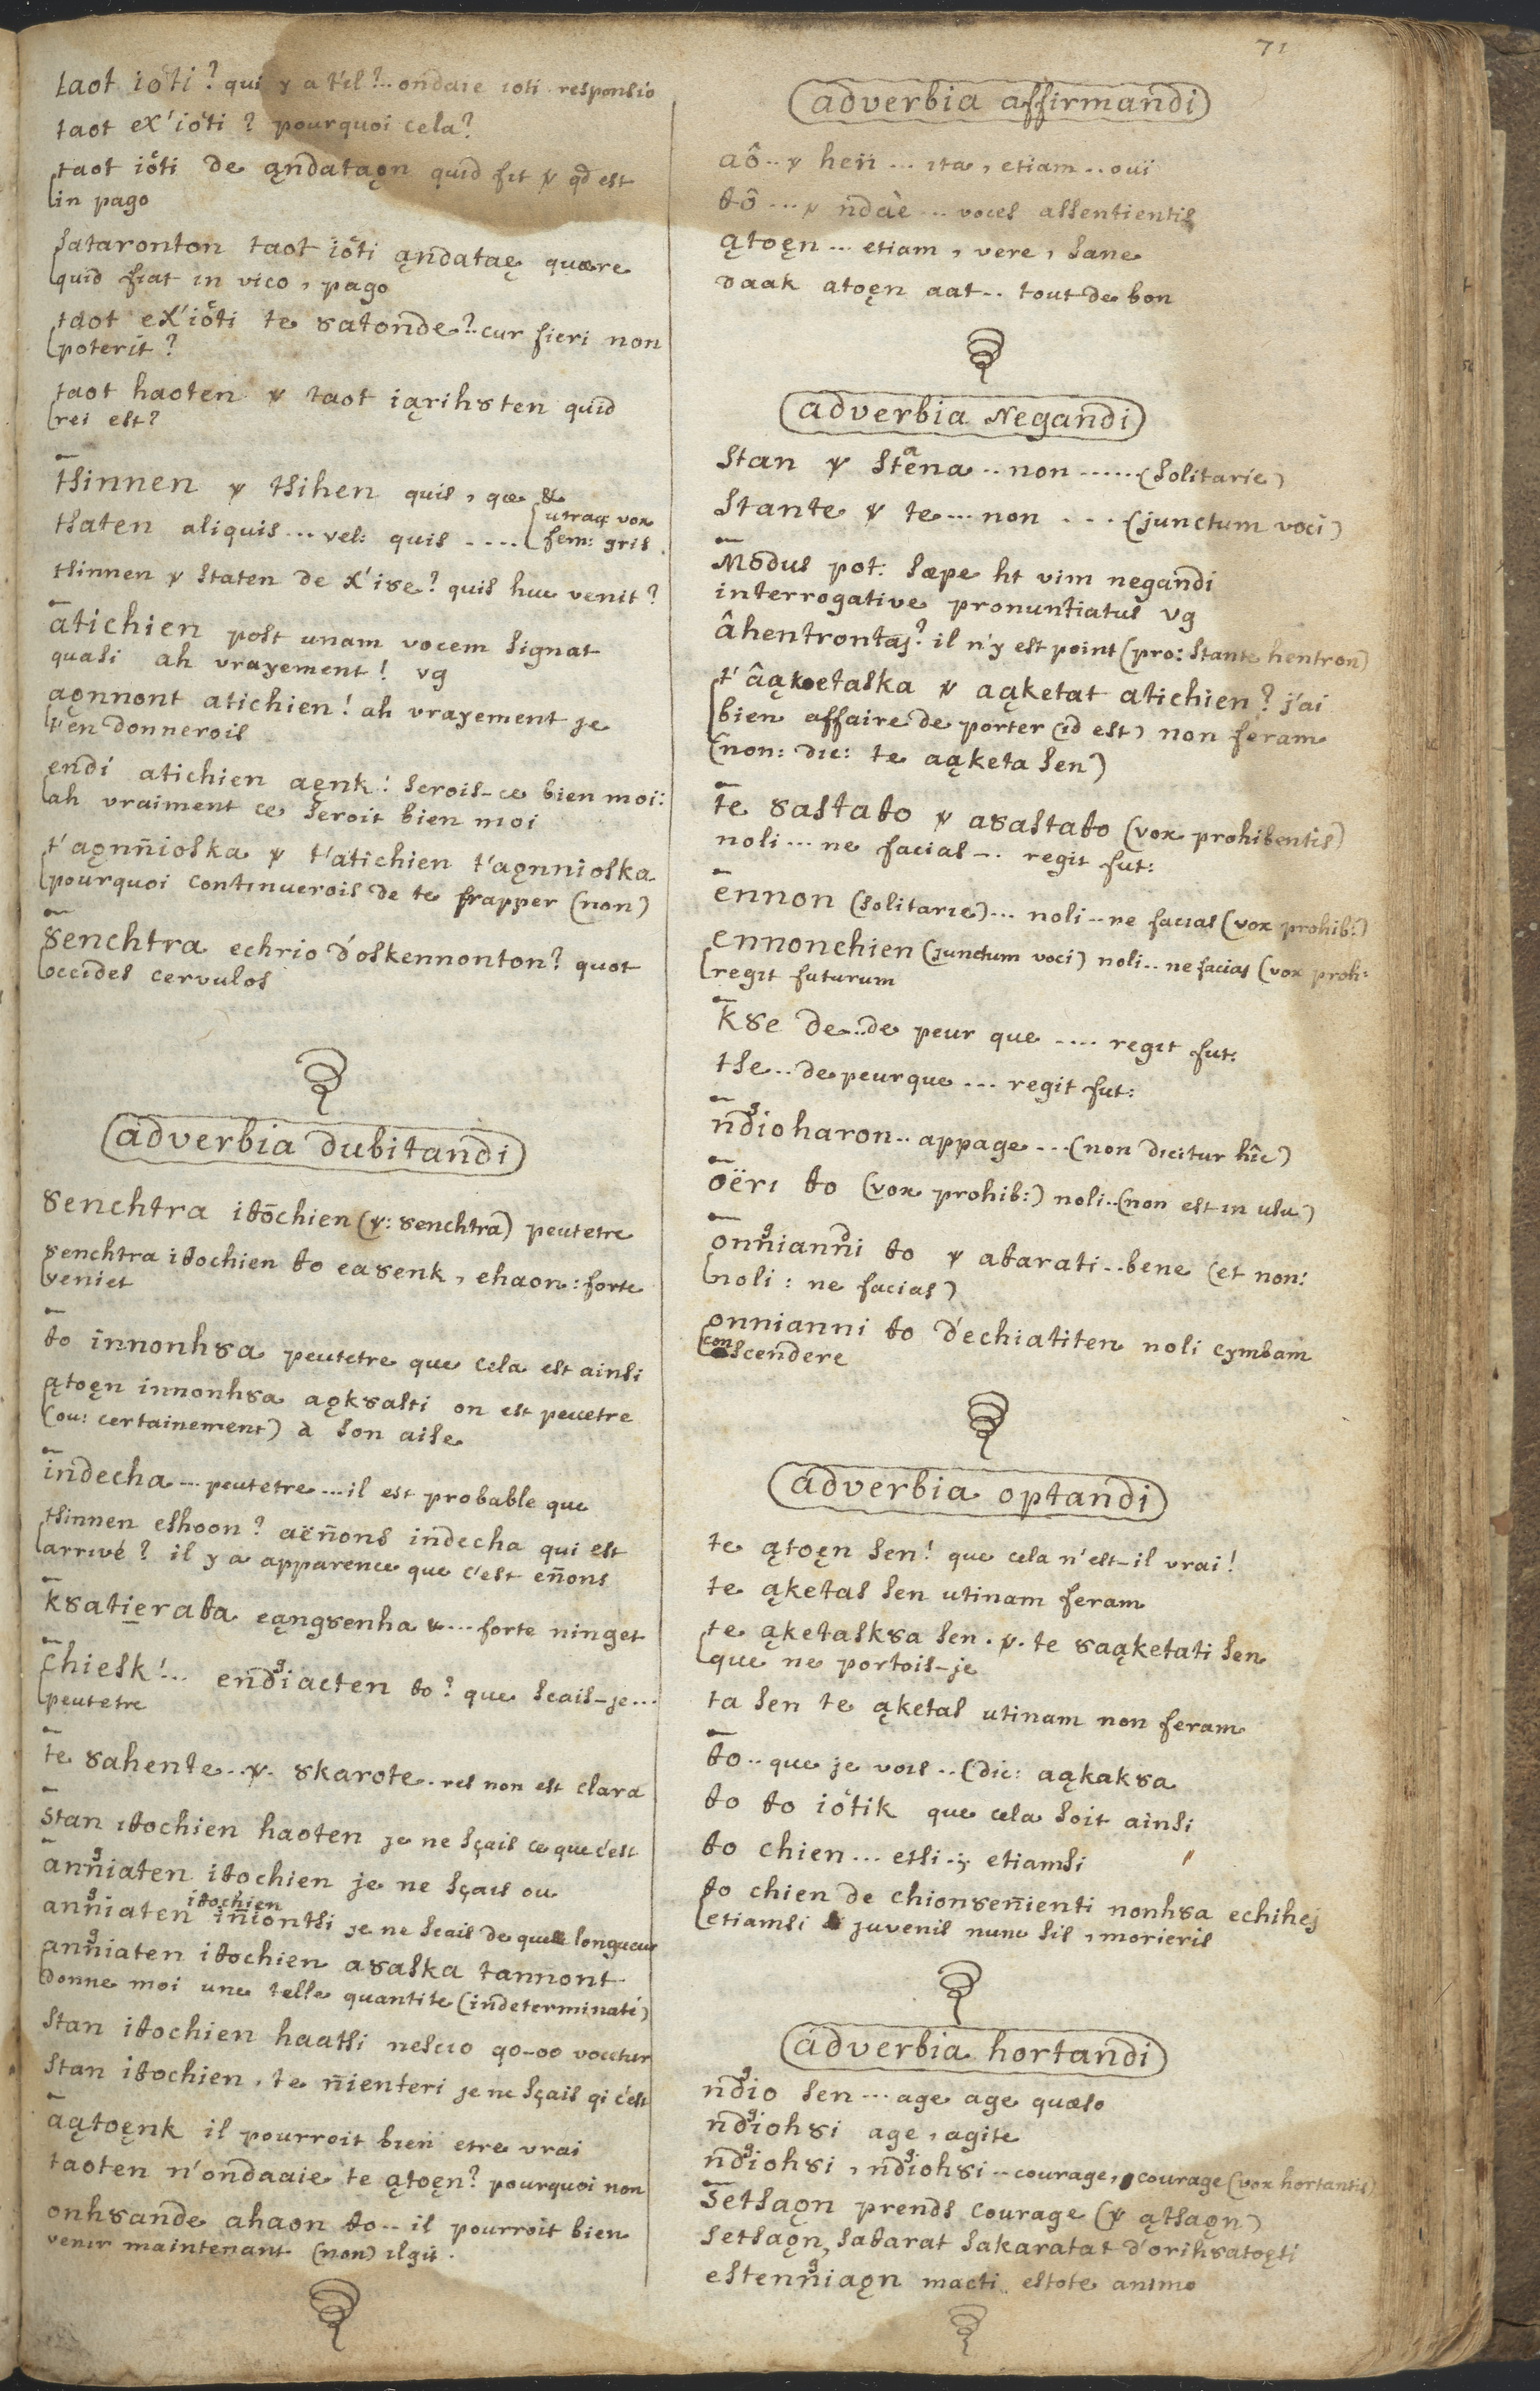 71
taot ioti? qui y a t'il?.. ondaie ioti responsio
taot eχ'ioti? pourquoi cela?
taot ioti de ąndataǫn quid fit ψ qd est
in pago
sataronton taot ioti ąndataę quære
quid fiat in vico, pago
taot eχ'ioti te 8atonde?.. cur fieri non
poterit?
taot haoten ψ taot iąrih8ten quid
rei est?
tsinnen ψ tsihen quis, quæ &
tsaten aliquis... vel: quis .... utraq vox
fem: gris.
tsinnen ψ staten de χ'i8e? quis huc venit?
atichien post unam vocem signat
quasi ah vrayement! vg
aǫnnont atichien! ah vrayement je
t'en donnerois
endi atichien aęnk! serois-ce bien moi:
ah vraiment ce seroit bien moi
t'aǫnñioska ψ t'atichien t'aǫnnioska
pourquoi continuerois de te frapper (non)
8enchtra echrio d'oskennonton? quot
occides cervulos
adverbia dubitandi
8enchtra iθochien (ψ: 8enchtra) peutetre
8enchtra iθochien θo ea8enk, ehaon: forte
veniet
θo innonh8a peutetre que cela est ainsi
ątoęn innonh8a aǫk8asti on est peuetre
(ou: certainement) à son aise
indecha... peutetre... il est probable que
tsinnen eshoon? aëñons indecha qui est
arrivé? il y a apparence que c'est eñons
k8atieraθa eąng8enha ψ... forte ninget
chiesk!... endiaeten θo? que scais-je...
peutetre
te 8ahente..ψ. skarote. res non est clara
stan iθochien haoten je ne sçais ce que c'est
anñiaten iθochien je ne sçais ou
anñiaten iθochien iñiontsi je ne scais de quelle longueur
anñiaten iθochien a8aska tannont
donne moi une telle quantite (indeterminaté)
stan iθochien haatsi nescio qo-oo vocetur
stan iθochien, te ñienteri je ne sçais qi c'est
aątoęnk il pourroit bien etre vrai
taoten n'ondaaie te ątoęn? pourquoi non
onh8ande ahaon θo.. il pourroit bien
venir maintenant (non)
adverbia affirmandi
aô.. ψ heñ... ita, etiam.. oui
θô... ψ ndaè... voces assentientis
ątoęn... etiam, vere, sane
daak atoęn aat.. tout de bon
adverbia Negandi
stan ψ stena.. non ......(solitarie)
stante ψ te... non ....(junctum voci)
Modus pot: sæpe ht vim negandi
interrogative pronuntiatus vg
âhentrontaj? il n'y est point (pro: stante hentron)
t'âąketaska ψ aąketat atichien? j'ai
bien affaire de porter (id est) non feram
(non: dic: te aąketa sen)
te 8astaθo ψ a8astaθo (vox prohibentis)
noli... ne facias... regit fut:
ennon (solitarie)... noli.. ne facias (vox prohib:)
ennonchien (junctum voci) noli.. ne facias (vox proh:
regit futurum
k8e de...de peur que .... regit fut:
tse.. de peur que ... regit fut:
ndioharon.. appage ...(non dicitur hîc)
oëri θo (vox prohib:) noli..(non est in usu)
onñianni θo ψ aθarati.. bene (et non:
noli: ne facias)
onnianni θo d'echiatiten noli cymbam
conscendere
adverbia optandi
te ątoęn sen! que cela n'est-il vrai!
te ąketas sen utinam feram
te ąketask8a sen. ψ. te 8aąketati sen
que ne portois-je
ta sen te ąketas utinam non feram
θo.. que je vois..(dic: aąkak8a
θo θo iotik que cela soit ainsi
θo chien... etsi.; etiamsi
θo chien de chion8eñienti nonh8a echihej
etiamsi juvenis nunc sis, morieris
adverbia hortandi
ndio sen... age age quæso
ndioh8i age, agite
ndioh8i, ndioh8i.. courage, courage (vox hortantis)
setsaǫn prends courage (ψ ątsaǫn)
setsaǫn, saθarat sakaratat d'orih8atoęti
estenñiaǫn macti estote animo